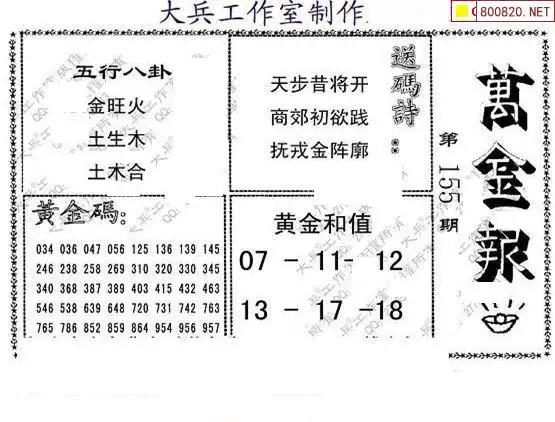 大兵工作室制作
800820.NET
五行八卦
金旺火
土生木
土木合
送碼詩：
天步昔将开
商郊初欲践
抚戎金阵廓
萬金報
第155期
黃金碼：
034 036 047 056 125 136 139 145
246 238 258 269 310 320 330 345
340 368 387 389 403 415 432 463
546 538 639 648 720 731 742 763
765 786 852 859 864 954 956 957
黄金和值
07 - 11- 12
13 - 17 -18